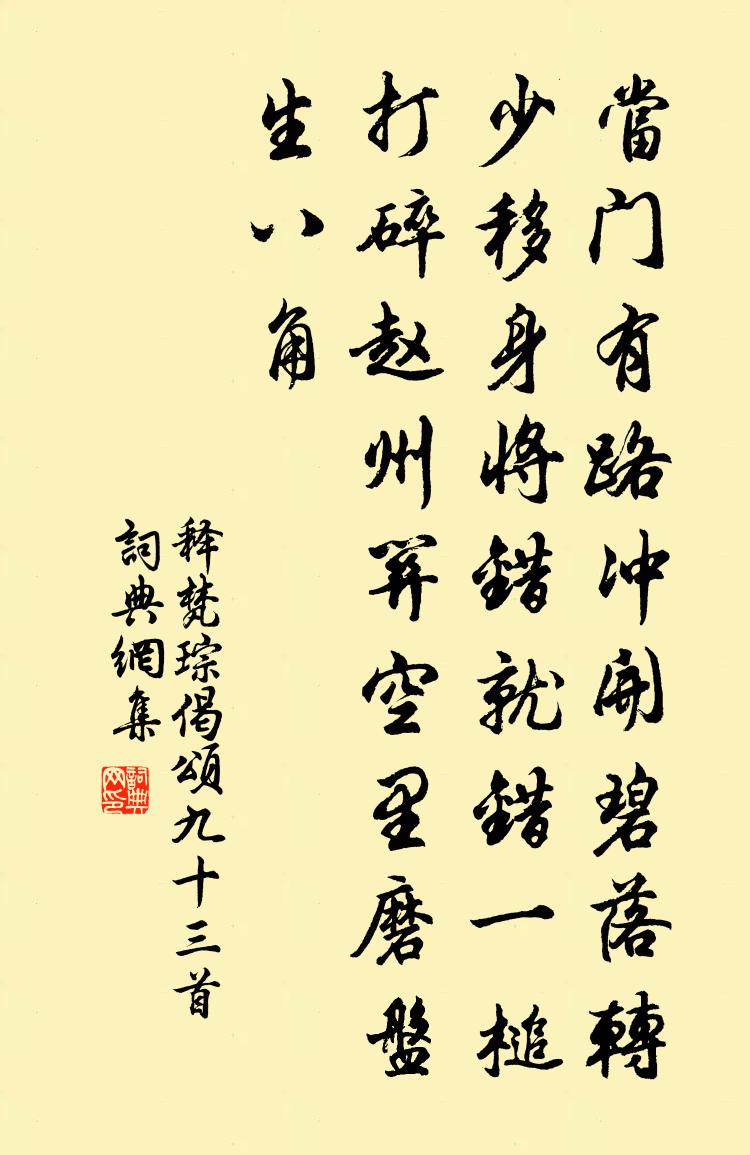 當门有路冲開碧落轉
少移身將錯就錯一槌
打碎赵州關空里磨盤
生八角
释梵琮偈頌九十三首
詞典網集
詞典网印